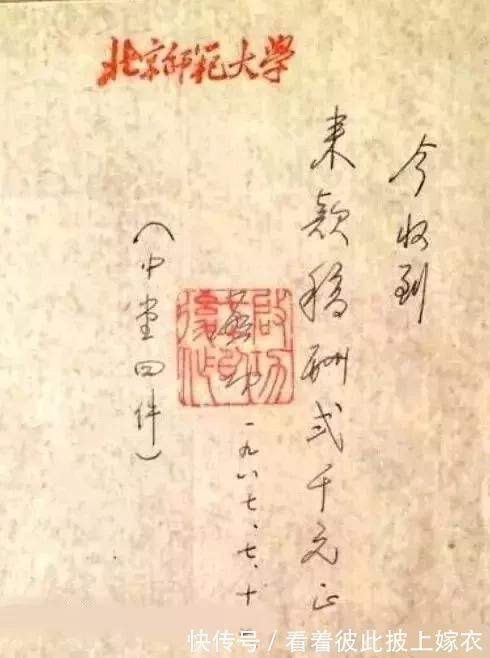 北京师範大学
今收到
来款稿酬弍千元正
启功
一九八七、七、十
（中堂四件）
快传号／看着彼此披上嫁衣